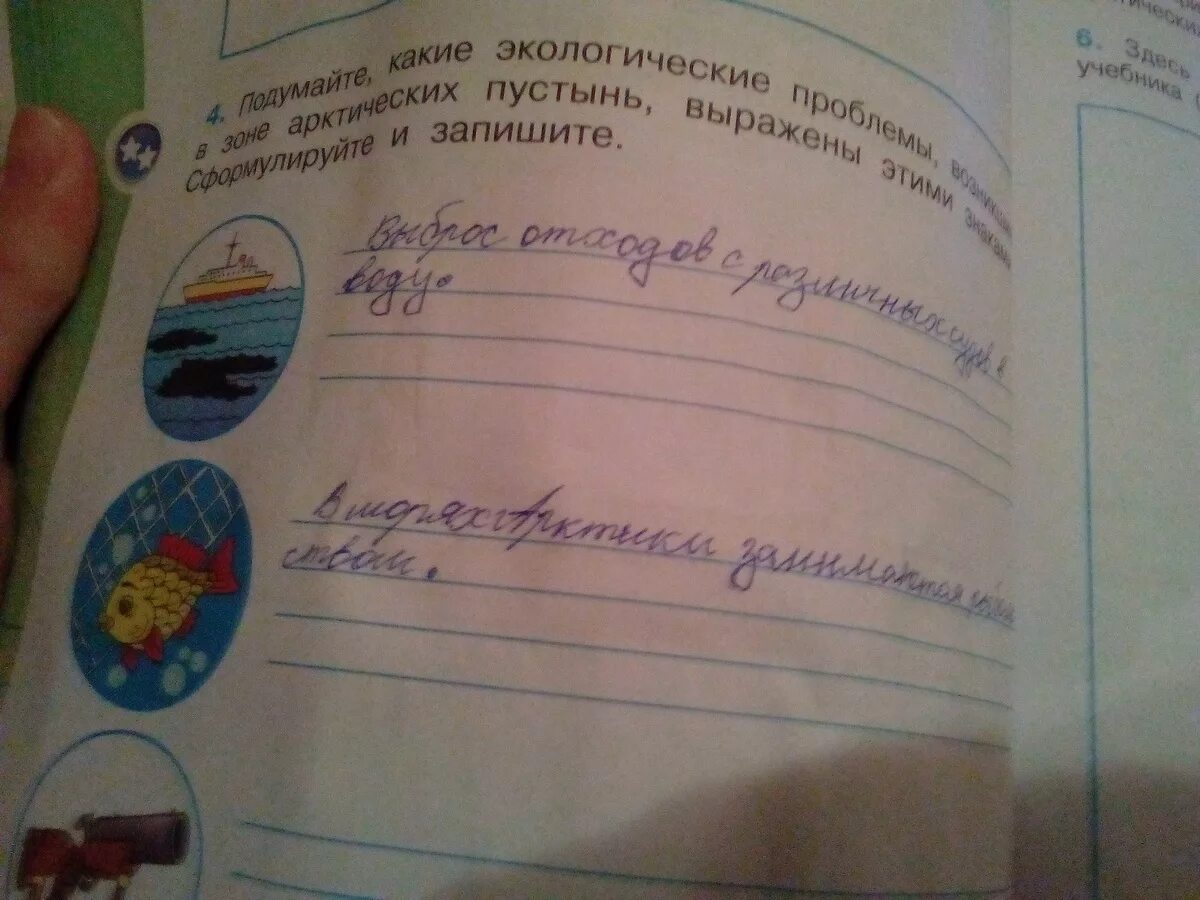 4. Подумайте, какие экологические проблемы, возникши
в зоне арктических пустынь, выражены этими знаками
Сформулируйте и запишите.
Выброс отходов с различных судов в
воду.
В морях Арктики занимаются
ством.
6. Здесь
учебника (